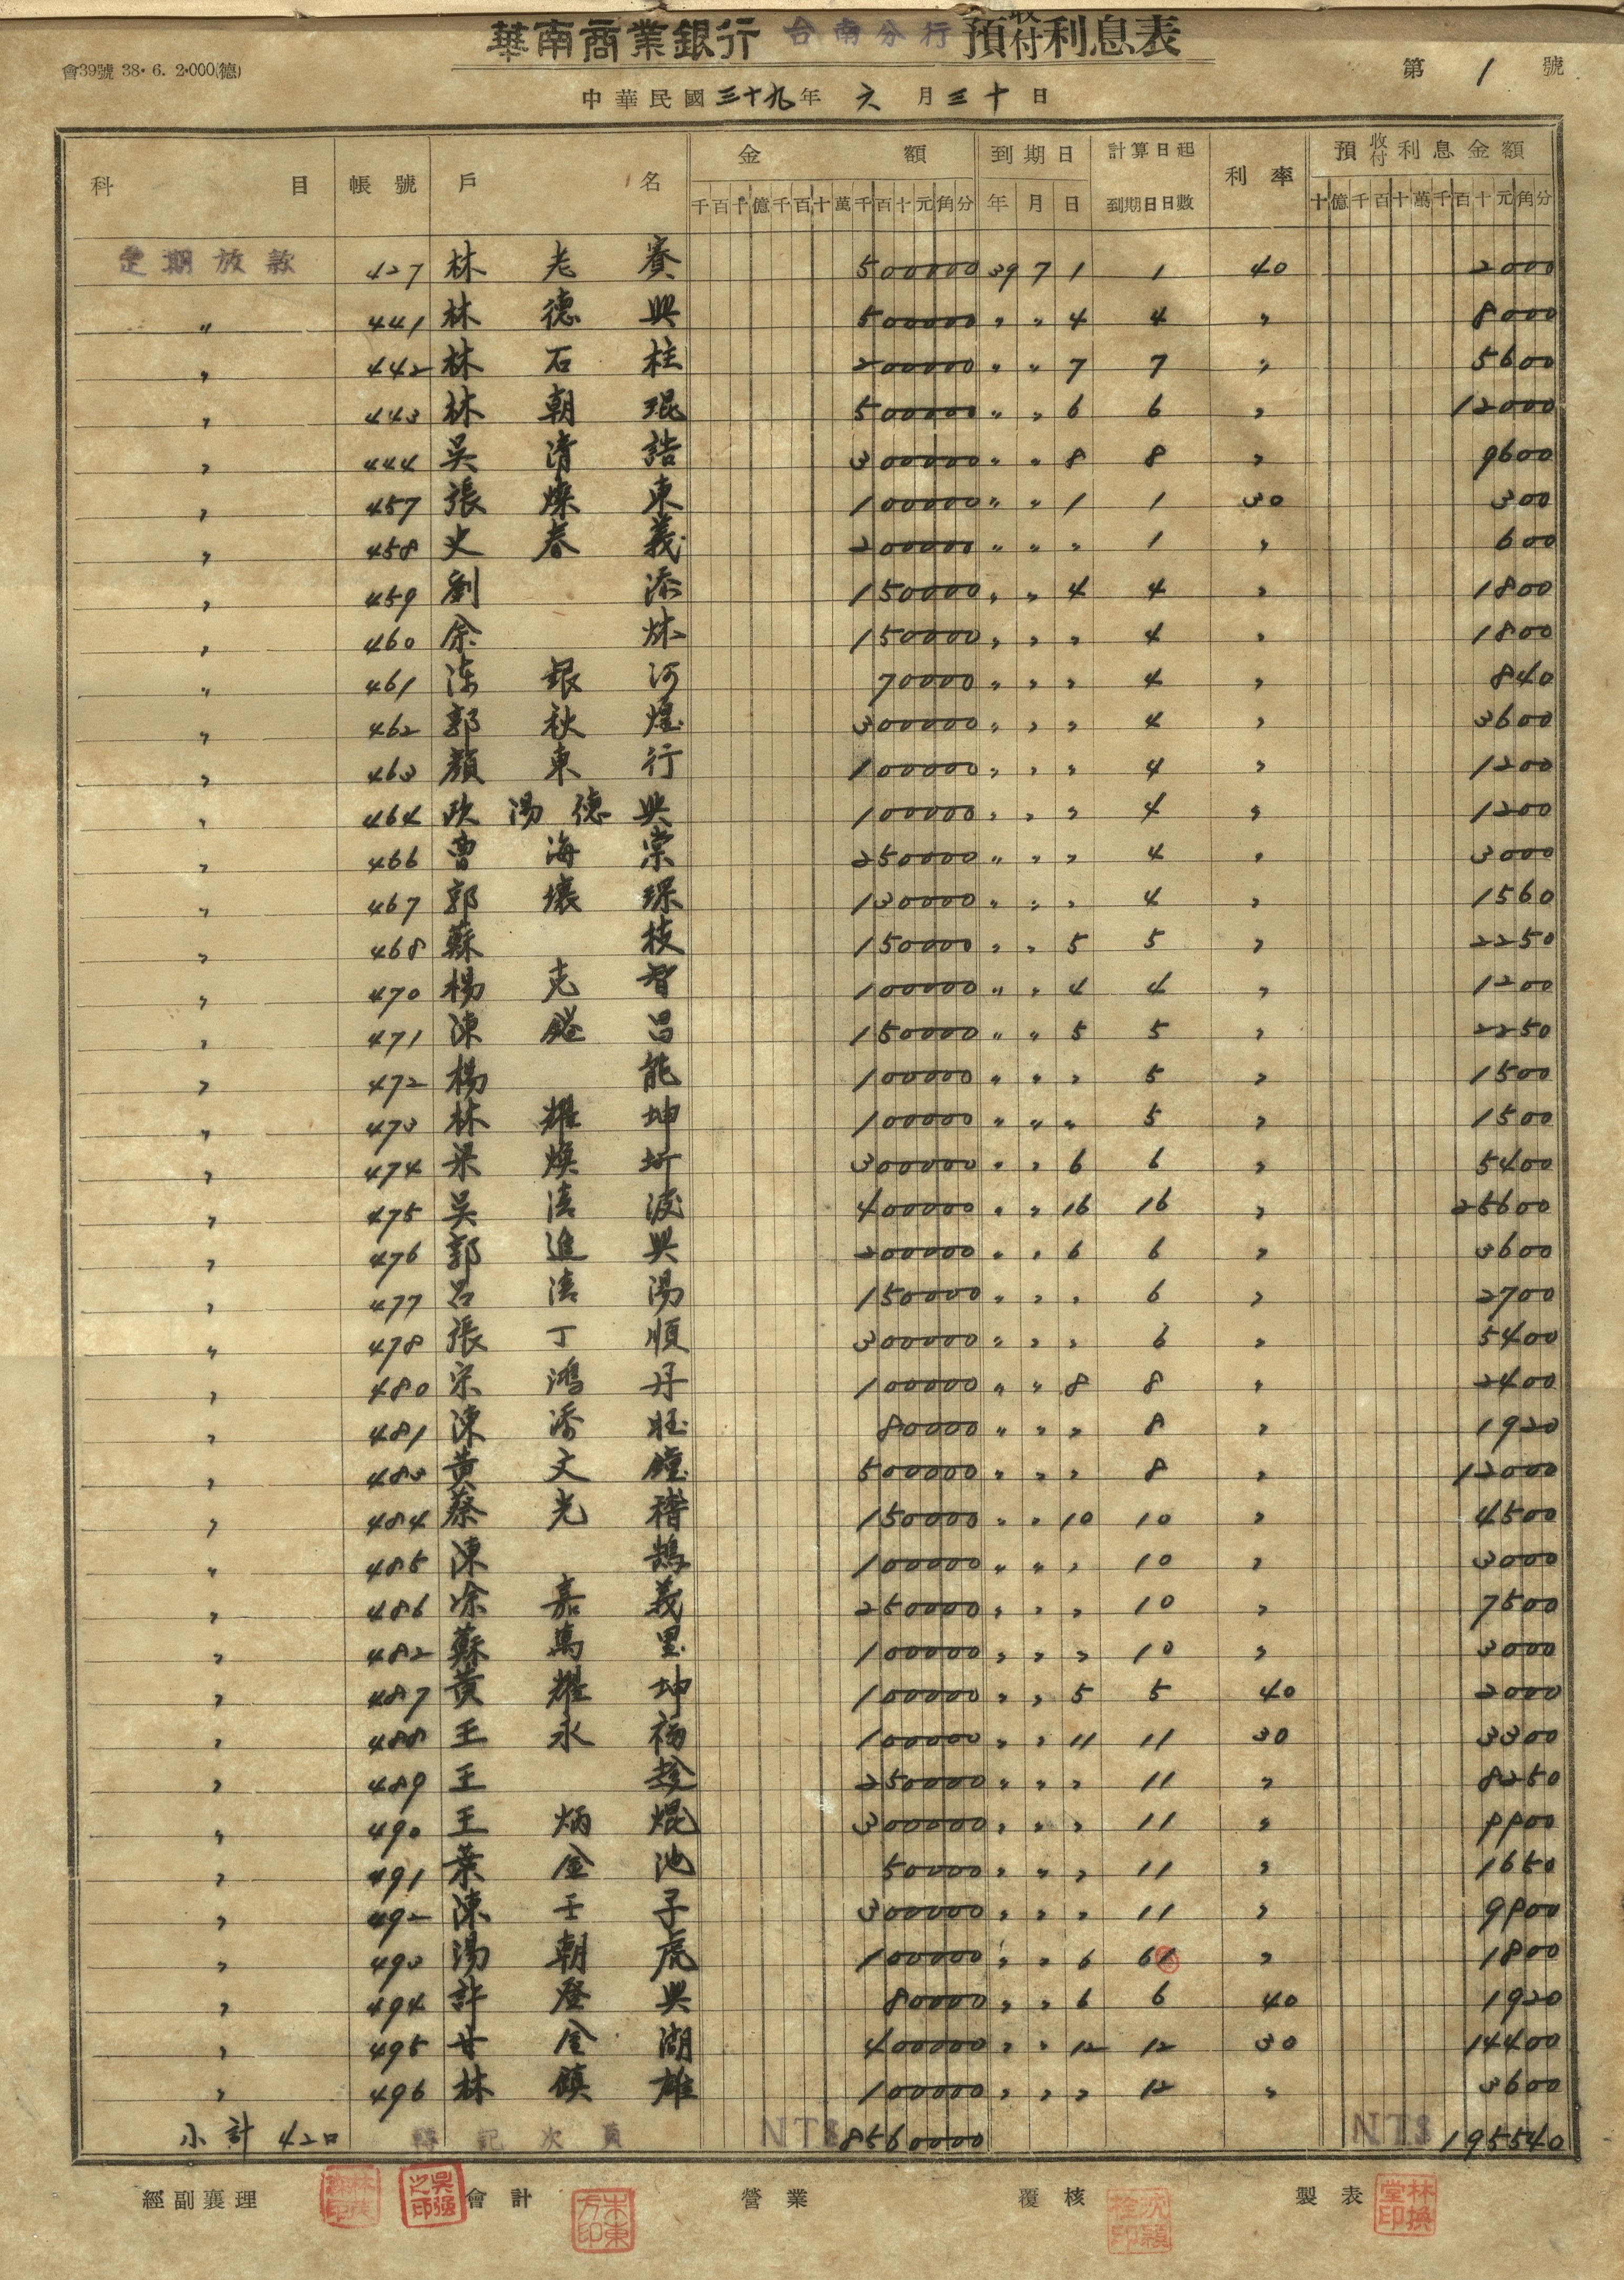 華南商業銀行 台南分行 預收付利息表
會39號 38.6.2.000(德)
第 1 號
中華民國三十九年 六 月 三十 日
科 目 帳 號 戶 名 金 額 到期日 計算日起到期日日數 利率 預收付利息金額
千百十億千百十萬千百十元角分 年 月 日 十億千百十萬千百十元角分
定期放款 427 林老賽 500000 39 7 1 1 40 2000
〃 441 林德興 500000 〃 〃 4 4 〃 8000
〃 442 林石柱 200000 〃 〃 7 7 〃 5600
〃 443 林朝琨 500000 〃 〃 6 6 〃 12000
〃 444 吳清誥 300000 〃 〃 8 8 〃 9600
〃 457 張燦東 100000 〃 〃 1 1 30 300
〃 458 史春義 200000 〃 〃 〃 1 〃 600
〃 459 劉添 150000 〃 〃 4 4 〃 1800
〃 460 余 150000 〃 〃 〃 4 〃 1800
〃 461 陳銀河 70000 〃 〃 〃 4 〃 840
〃 462 郭秋煌 300000 〃 〃 〃 4 〃 3600
〃 463 顏東行 100000 〃 〃 〃 4 〃 1200
〃 464 欧陽德興 100000 〃 〃 〃 4 〃 1200
〃 466 曹海棠 250000 〃 〃 〃 4 〃 3000
〃 467 郭壞琛 130000 〃 〃 〃 4 〃 1560
〃 468 蘇枝 150000 〃 〃 5 5 〃 2250
〃 470 楊克智 100000 〃 〃 4 4 〃 1200
〃 471 陳昌 150000 〃 〃 5 5 〃 2250
〃 472 楊能 100000 〃 〃 〃 5 〃 1500
〃 473 林耀坤 100000 〃 〃 〃 5 〃 1500
〃 474 梁煥圻 300000 〃 〃 6 6 〃 5400
〃 475 吳清波 400000 〃 〃 16 16 〃 25600
〃 476 郭進興 200000 〃 〃 6 6 〃 3600
〃 477 呂清湯 150000 〃 〃 〃 6 〃 2700
〃 478 張丁順 300000 〃 〃 〃 6 〃 5400
〃 480 宋鴻丹 100000 〃 〃 8 8 〃 2400
〃 481 陳添旺 80000 〃 〃 〃 8 〃 1920
〃 483 黃文鏗 500000 〃 〃 〃 8 〃 12000
〃 484 蔡光稽 150000 〃 〃 10 10 〃 4500
〃 485 陳鵠 100000 〃 〃 〃 10 〃 3000
〃 486 涂嘉義 250000 〃 〃 〃 10 〃 7500
〃 482 蘇萬里 100000 〃 〃 〃 10 〃 3000
〃 487 黃耀坤 100000 〃 〃 5 5 40 2000
〃 488 王永福 100000 〃 〃 11 11 30 3300
〃 489 王趁 250000 〃 〃 〃 11 〃 8250
〃 490 王炳焜 300000 〃 〃 〃 11 〃 9900
〃 491 葉金池 50000 〃 〃 〃 11 〃 1650
〃 492 陳壬子 300000 〃 〃 〃 11 〃 9900
〃 493 湯朝虎 100000 〃 〃 6 6 〃 1800
〃 494 許登興 80000 〃 〃 6 6 40 1920
〃 495 甘金湖 400000 〃 〃 12 12 30 14400
〃 496 林鎮雄 100000 〃 〃 〃 12 〃 3600
小計 42口 轉記次頁 NT$ 8560000 NT$ 195540
經副襄理 會計 營業 覆核 製表
吳強之印
林換堂印